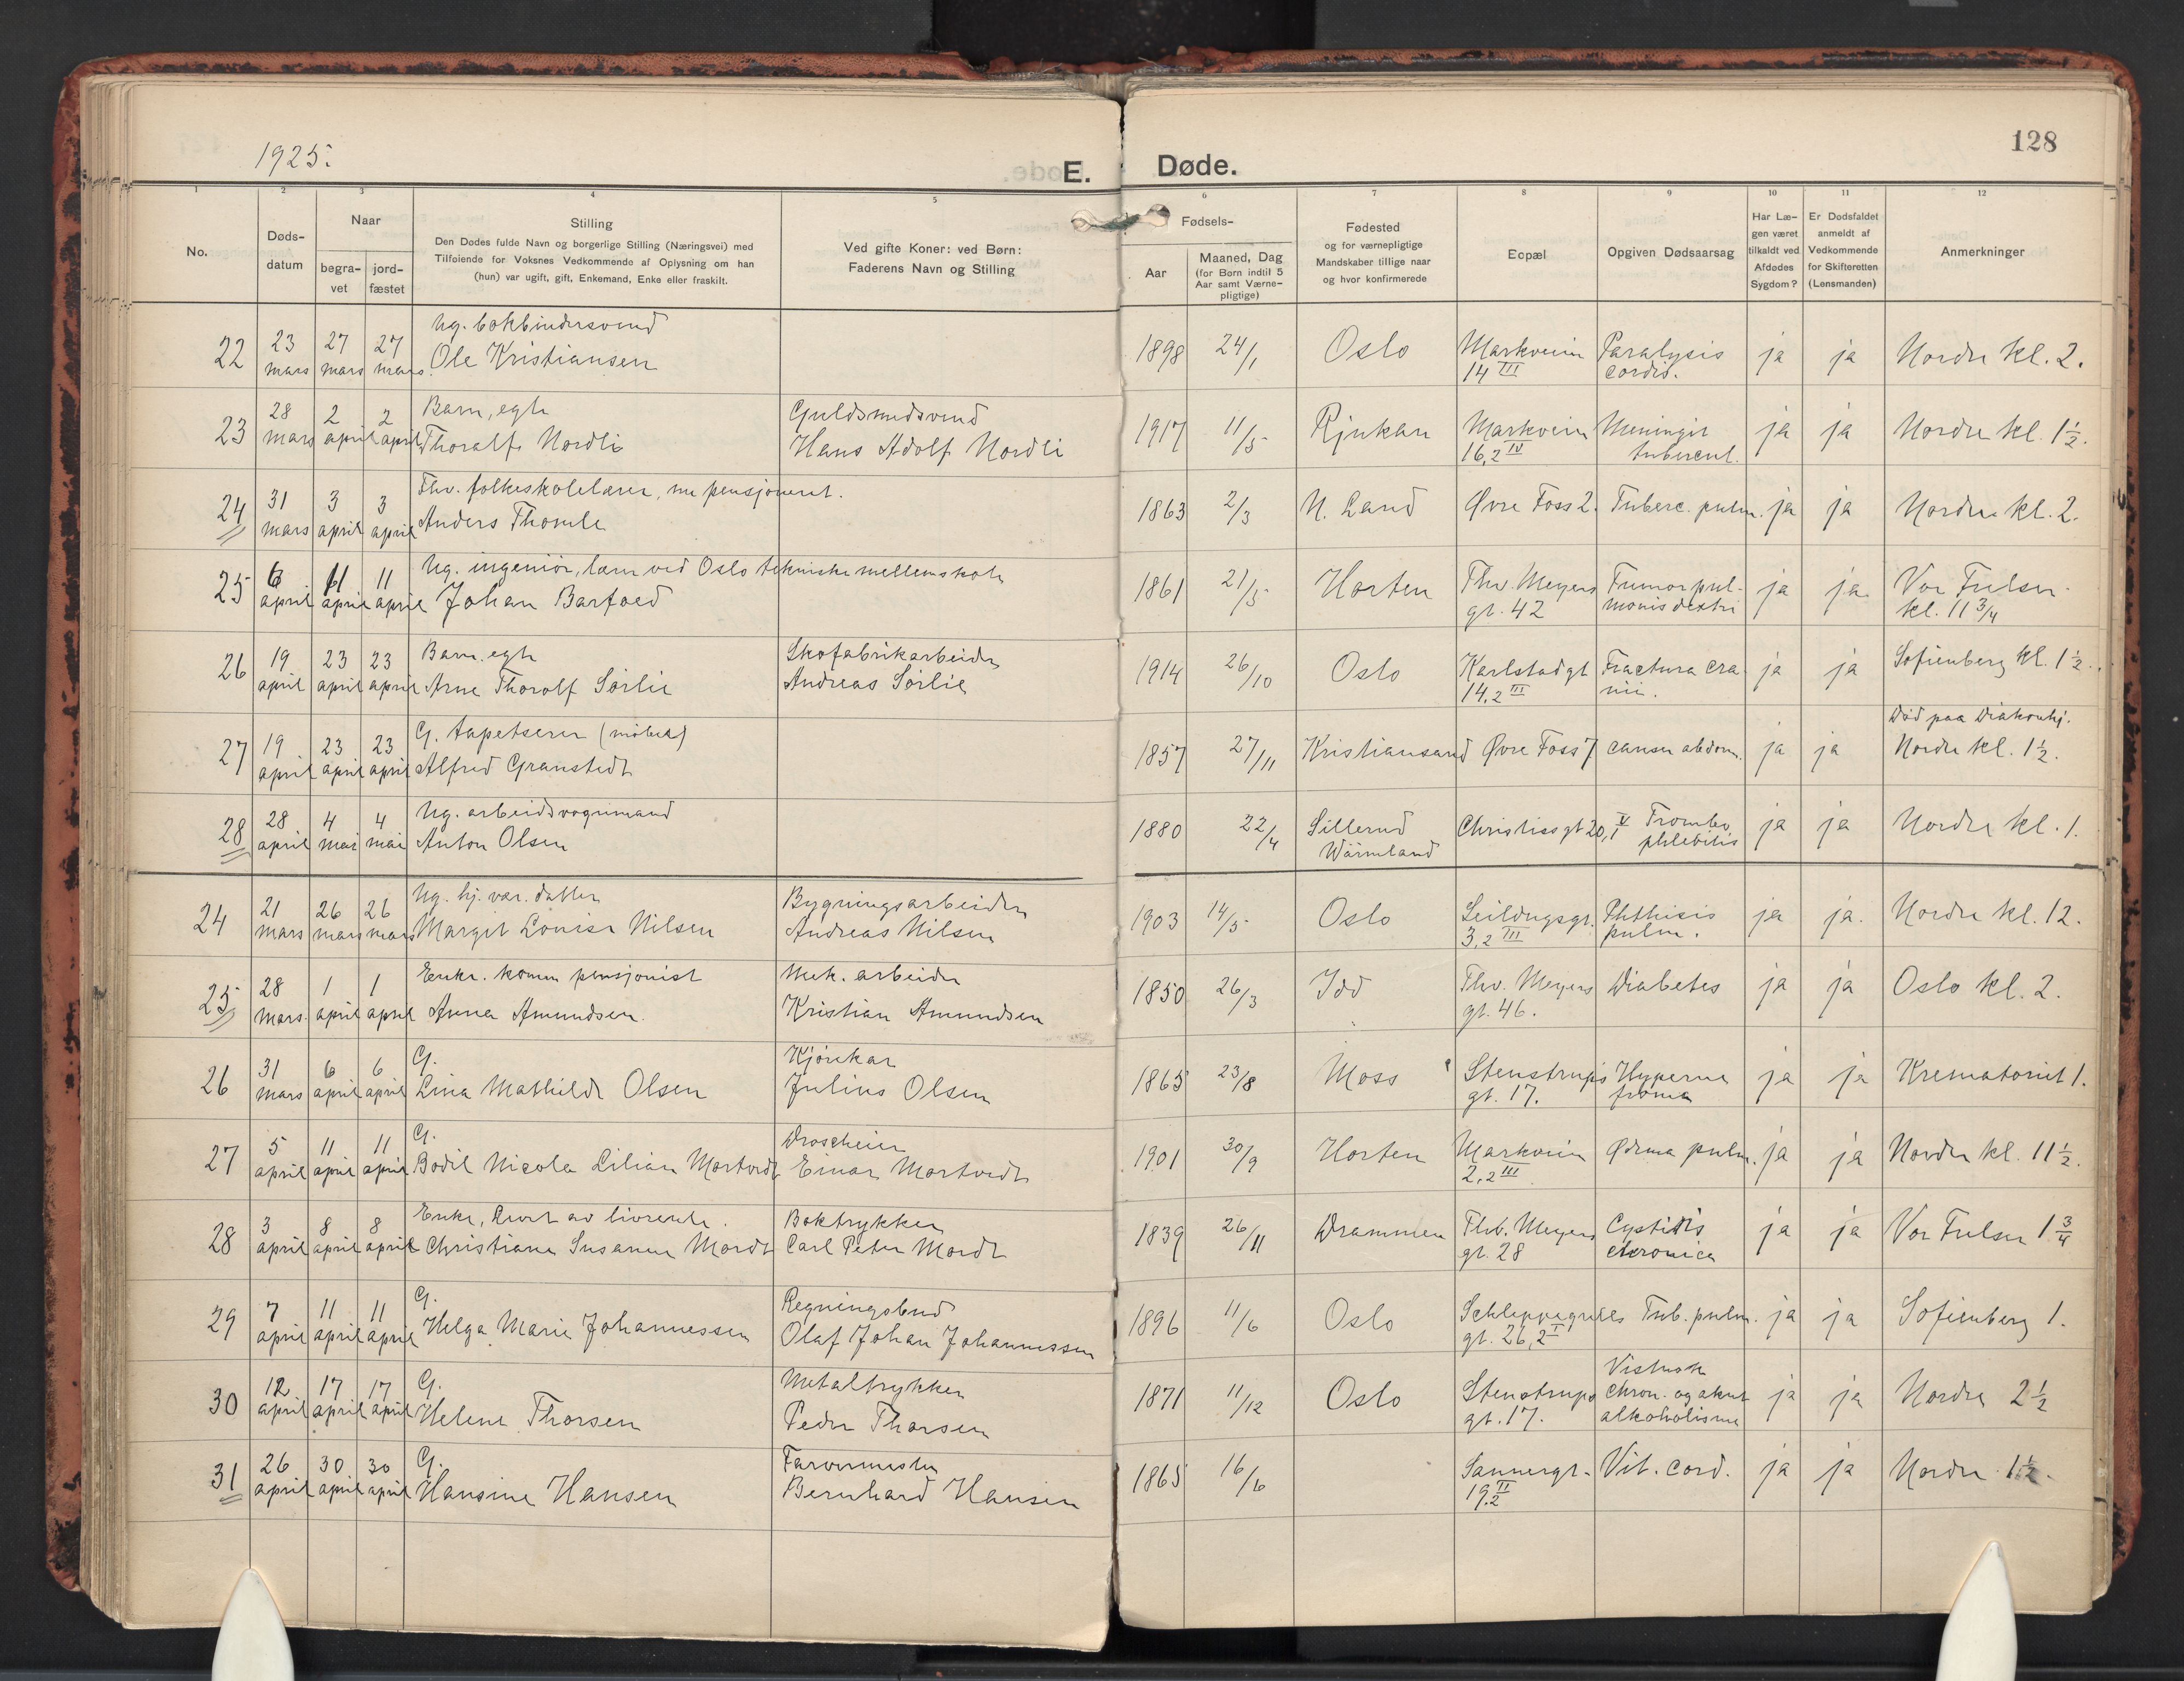 1925.
E. Døde.
128
1 2 3 4 5 6 7 8 9 10 11 12
No.
Døds-
datum
Naar
begra-
vet
jord-
fæstet
Stilling
Den Dødes fulde Navn og borgerlige Stilling (Næringsvei) med
Tilføiende for Voksnes Vedkommende af Oplysning om han
(hun) var ugift, gift, Enkemand, Enke eller fraskilt.
Ved gifte Koner: ved Børn:
Faderens Navn og Stilling
Fødsels-
Aar
Maaned, Dag
(for Børn indtil 5
Aar samt Værne-
pligtige)
Fødested
og for værnepligtige
Mandskaber tillige naar
og hvor konfirmerede
Bopæl
Opgiven Dødsaarsag
Har Læ-
gen været
tilkaldt ved
Afdødes
Sygdom?
Er Dødsfaldet
anmeldt af
Vedkommende
for Skifteretten
(Lensmanden)
Anmerkninger
Ug. bokbindersvend
22 23 mars 27 mars 27 mars Ole Kristiansen 1898 24/1 Oslo Markveien 14 III Paralysis cordis. ja ja Nordre kl. 2.
Barn, egte Guldsmedsvend
23 28 mars 2 april 2 april Thoralf Nordli Hans Adolf Nordli 1917 11/5 Rjukan Markveien 16,2 IV Meningit tubercul. ja ja Nordre kl. 1 1/2.
Fhv. folkeskolelærer, nu pensjoneret.
24 31 mars 3 april 3 april Anders Thomle 1863 2/3 N. Land Øvre Foss 2. Tuberc. pulm. ja ja Nordre kl. 2.
Ug. ingeniør, lærer ved Oslo tekniske mellemskole
25 6 april 11 april 11 april Johan Barfoed 1861 21/5 Horten Thv. Meyers gt. 42 Tumor pulmonis dextri ja ja. Vor Frelser kl. 11 3/4
Barn. egte Skofabrikarbeider
26 19 april 23 april 23 april Arne Thorolf Sørlie Andreas Sørlie 1914 26/10 Oslo Karlstadgt 14,2 III Fractura cranii. ja ja Sofienberg kl. 1 1/2.
G. tapetserer (møbel) Død paa Diakonhj.
27 19 april 23 april 23 april Alfred Granstedt 1857 27/11 Kristiansand Øvre Foss 7 cancer abdom. ja ja Nordre kl. 1 1/2.
Ug. arbeidsvognmand
28 28 april 4 mai 4 mai Anton Olsen 1880 22/4 Sillerud Wärmland Christiesgt 20,1 V Trombophlebitis ja ja Nordre kl. 1.
Ug. hj. vær. datter Bygningsarbeider
24 21 mars 26 mars 26 mars Margit Lovise Nilsen Andreas Nilsen 1903 14/5 Oslo Seildugsgt. 3,2 III Phthisis pulm. ja ja. Nordre kl. 12.
Enke. komm pensjonist Mek. arbeider
25 28 mars. 1 april 1 april Anna Amundsen. Kristian Amundsen 1850 26/3 Idd Thv. Meyers gt. 46. Diabetes ja ja Oslo kl. 2.
G. Kjørekar
26 31 mars 6 april 6 april Lina Mathilde Olsen Julius Olsen 1865 23/8 Moss Stenstrups gt. 17. ja ja Krematoriet 1.
G. Droscheeier
27 5 april 11 april 11 april Bodil Nicola Lilian Mortvedt Einar Mortvedt 1901 30/9 Horten Markveien 2,2 III. Ødema pulm. ja ja Nordre kl. 11 1/2.
Enke, levet av livrente. Boktrykker
28 3 april 8 april 8 april Christiane Susanne Mordt Carl Peter Mordt 1839 26/11 Drammen Thv. Meyers gt. 28 Cystitis chronica ja ja Vor Frelser 1 3/4
G. Regningsbud
29 7 april 11 april 11 april Helga Marie Johannessen Olaf Johan Johannessen 1896 11/6 Oslo Schleppegrells gt. 26,2 I Tub. pulm. ja ja Sofienberg 1.
G. Metaltrykker
30 12 april 17 april 17 april Helene Thorsen Peder Thorsen 1871 11/12 Oslo Stenstrups gt. 17. Vistnok chron. og akut alkoholisme ja ja Nordre 2 1/2
G. Farvermester
31 26 april 30 april 30 april Hansine Hansen Bernhard Hansen 1865 16/6 Sannergt. 19.2 II Vit. cord. ja ja Nordre 1 1/2.